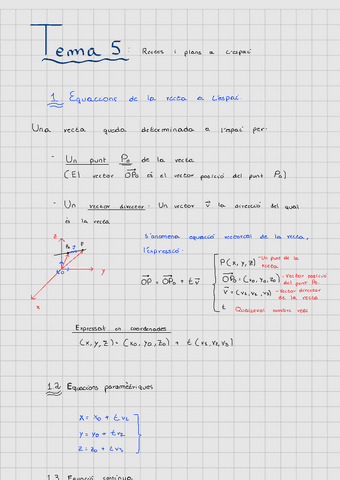 Tema 5: Rectes i plans a l'espai
1 Equacions de la recta a l'espai.
Una recta queda determinada a l'espai per:
- Un punt P₀ de la recta
(El vector OP₀ és el vector posició del punt P₀)
- Un vector director: Un vector v la direcció del qual
és la recta
S'anomena equació vectorial de la recta,
l'expressió:
OP = OP₀ + t v
P(x, y, z) - Un punt de la
recta
OP₀ = (x₀, y₀, z₀) - Vector posició
del punt P₀
v = (v₁, v₂, v₃) - Vector director
de la recta
t Qualsevol nombre real
z
P₀
P
O
y
x
Expressat en coordenades
(x, y, z) = (x₀, y₀, z₀) + t (v₁, v₂, v₃)
1.2 Equacions paramètriques
x = x₀ + t v₁
y = y₀ + t v₂
z = z₀ + t v₃
1.3 Equació contínua